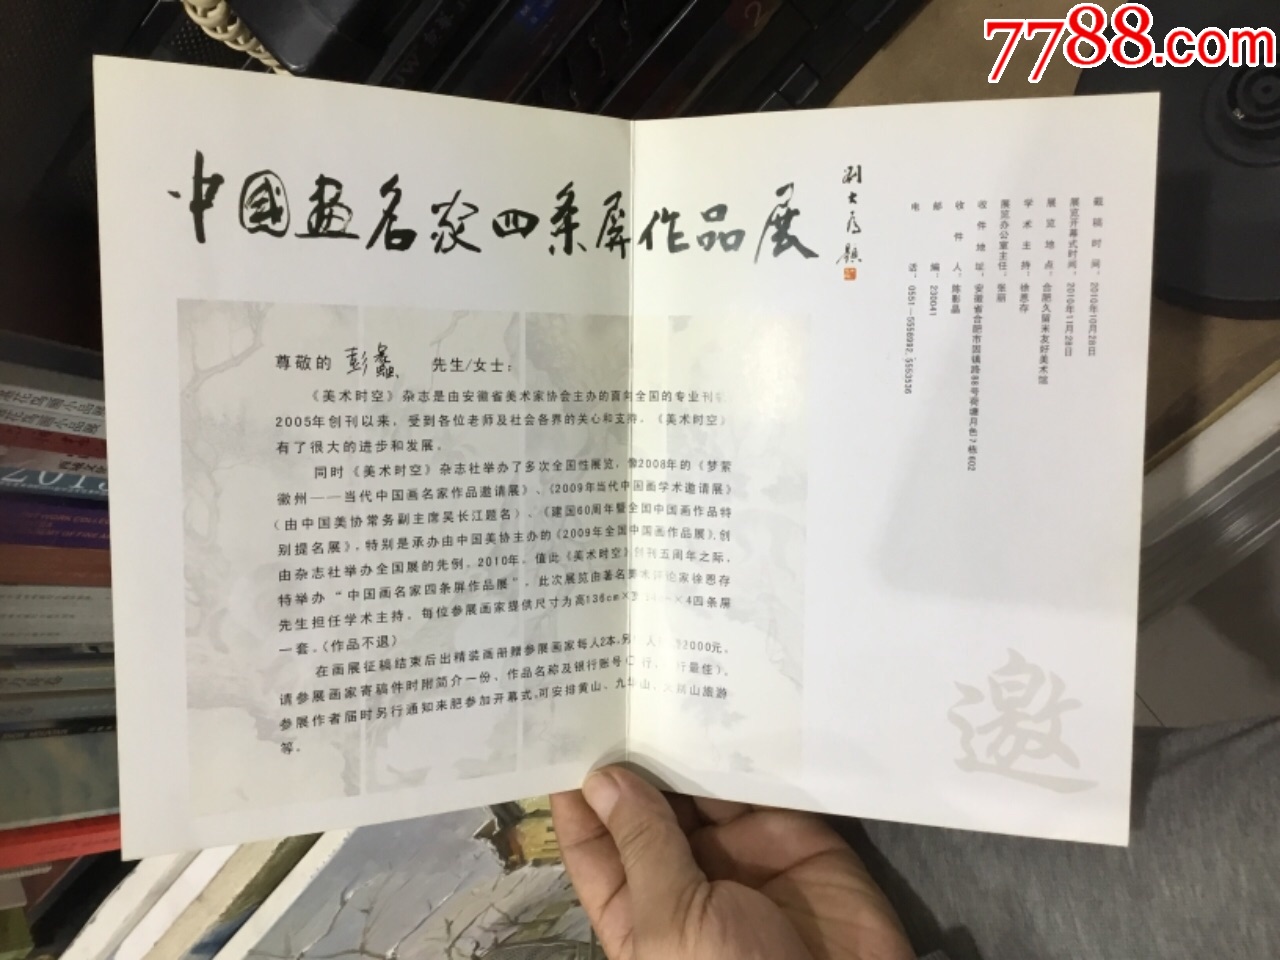 7788.com
中國画名家四条屏作品展
刘大为题
尊敬的 彭蠡 先生/女士：
《美术时空》杂志是由安徽省美术家协会主办的面向全国的专业刊
2005年创刊以来，受到各位老师及社会各界的关心和支持，《美术时空》
有了很大的进步和发展。
同时《美术时空》杂志社举办了多次全国性展览，像2008年的《梦萦
徽州——当代中国画名家作品邀请展》、《2009年当代中国画学术邀请展》
（由中国美协常务副主席吴长江题名）、《建国60周年暨全国中国画作品特
别提名展》，特别是承办由中国美协主办的《2009年全国中国画作品展》，创
由杂志社举办全国展的先例。2010年，值此《美术时空》创刊五周年之际，
特举办“中国画名家四条屏作品展”，此次展览由著名美术评论家徐恩存
先生担任学术主持，每位参展画家提供尺寸为高136cm× ×4四条屏
一套。（作品不退）
在画展征稿结束后出精装画册赠参展画家每人2本，另 人 2000元。
请参展画家寄稿件时附简介一份、作品名称及银行账号（ 行， 行最佳）。
参展作者届时另行通知来肥参加开幕式，可安排黄山、九华山、天柱山旅游
等。
截稿时间：2010年10月28日
展览开幕式时间：2010年11月28日
展览地点：合肥久留米友好美术馆
学术主持：徐恩存
展览办公室主任：张丽
收件地址：安徽省合肥市固镇路88号荷塘月色7栋602
收件人：陈影晶
邮编：230041
电话：0551—5556992，5553536
邀